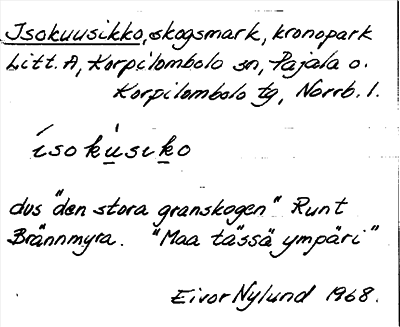 Isokuusikko, skogsmark, kronopark
Litt. A, Korpilombolo sn, Pajala o.
Korpilombolo tg, Norrb. l.
ísokùsiko
dvs "den stora granskogen" Runt
Brännmyra. "Maa tässä ympäri"
Eivor Nylund 1968.